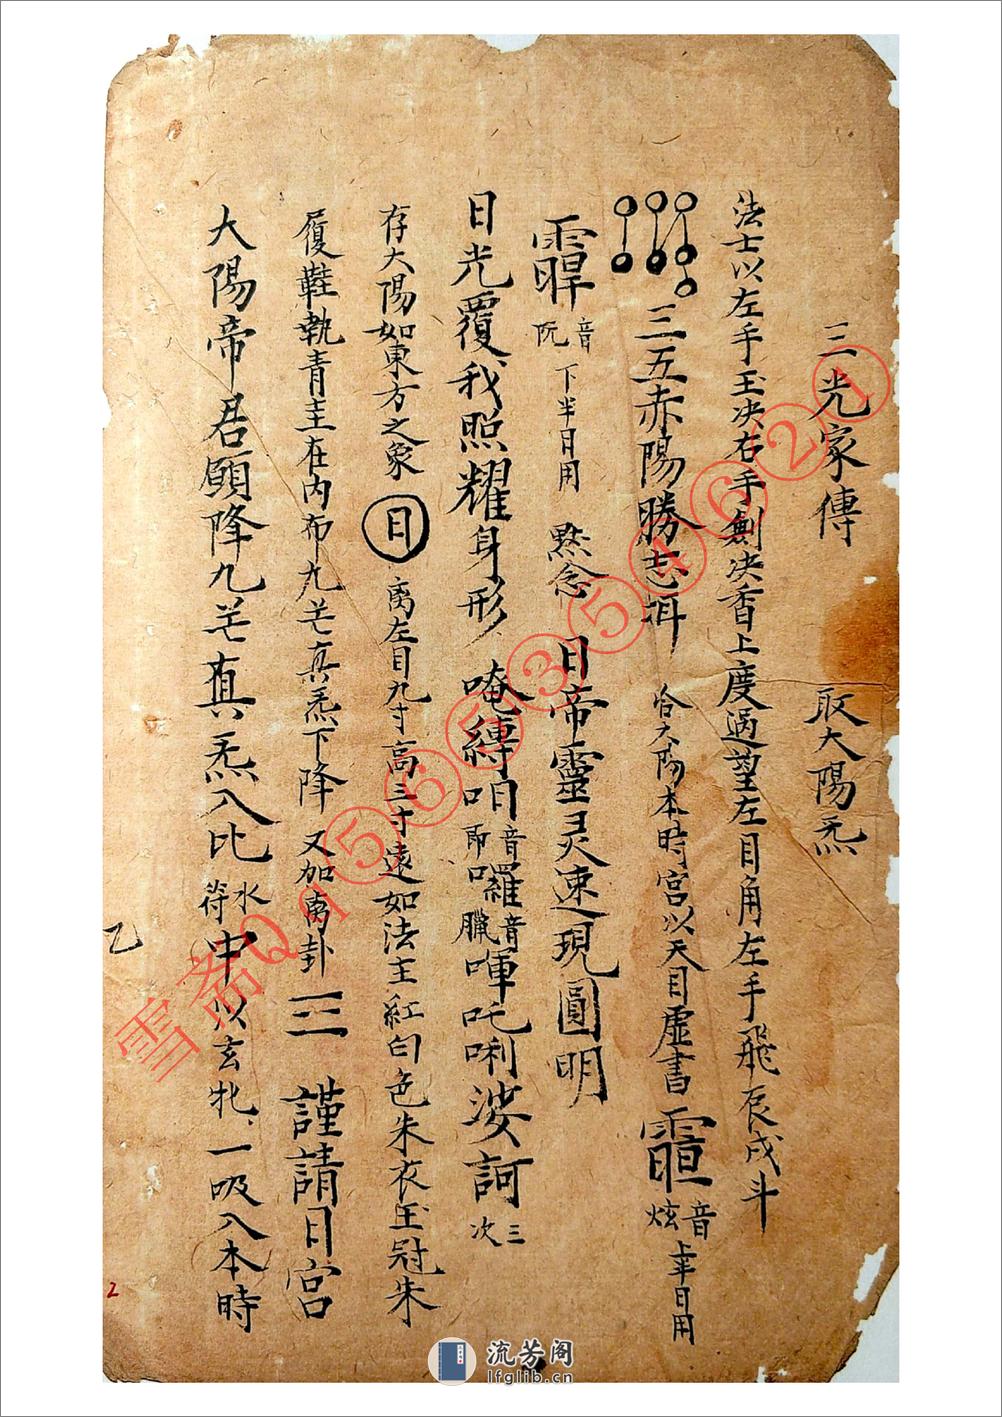 三光家傳 取大陽炁
法士以左手玉决右手劍决香上度過望左目角左手飛辰戌斗
三五赤陽勝志 太陽本時宮以天目虛書 音炫 上半日用
音阮 下半日用 㸃念 日帝靈灵速現圓明
日光覆我照耀身形 唵縛咱音昂囉音臘喗吒唎娑訶三次
存大陽如東方之象 日 离左目九寸高三寸遠如法主紅白色朱衣玉冠朱
履鞋執青圭在内布九芒真炁下降 又加离卦 三 謹請日宮
大陽帝君願降九芒真炁入比水符中以玄牝、一吸入本時
乙
2
雪斋Qq565354624
流芳阁
lfglib.cn